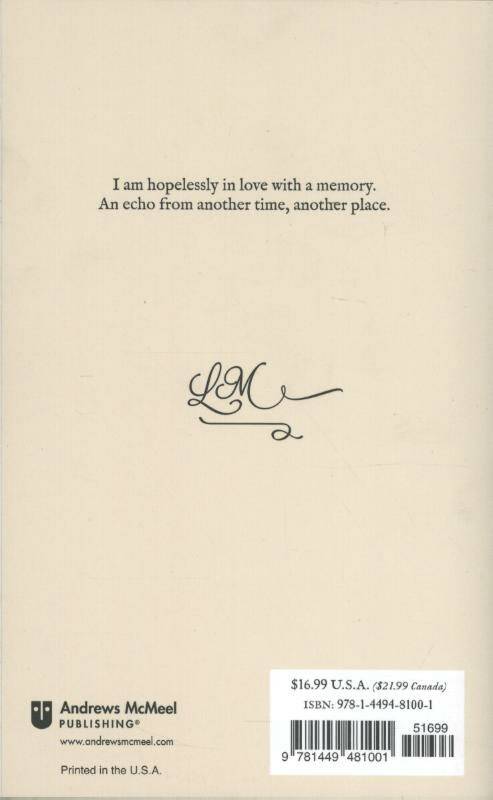 I am hopelessly in love with a memory.
An echo from another time, another place.
LM
$16.99 U.S.A. ($21.99 Canada)
ISBN: 978-1-4494-8100-1
51699
9 781449 481001
Andrews McMeel
PUBLISHING®
www.andrewsmcmeel.com
Printed in the U.S.A.